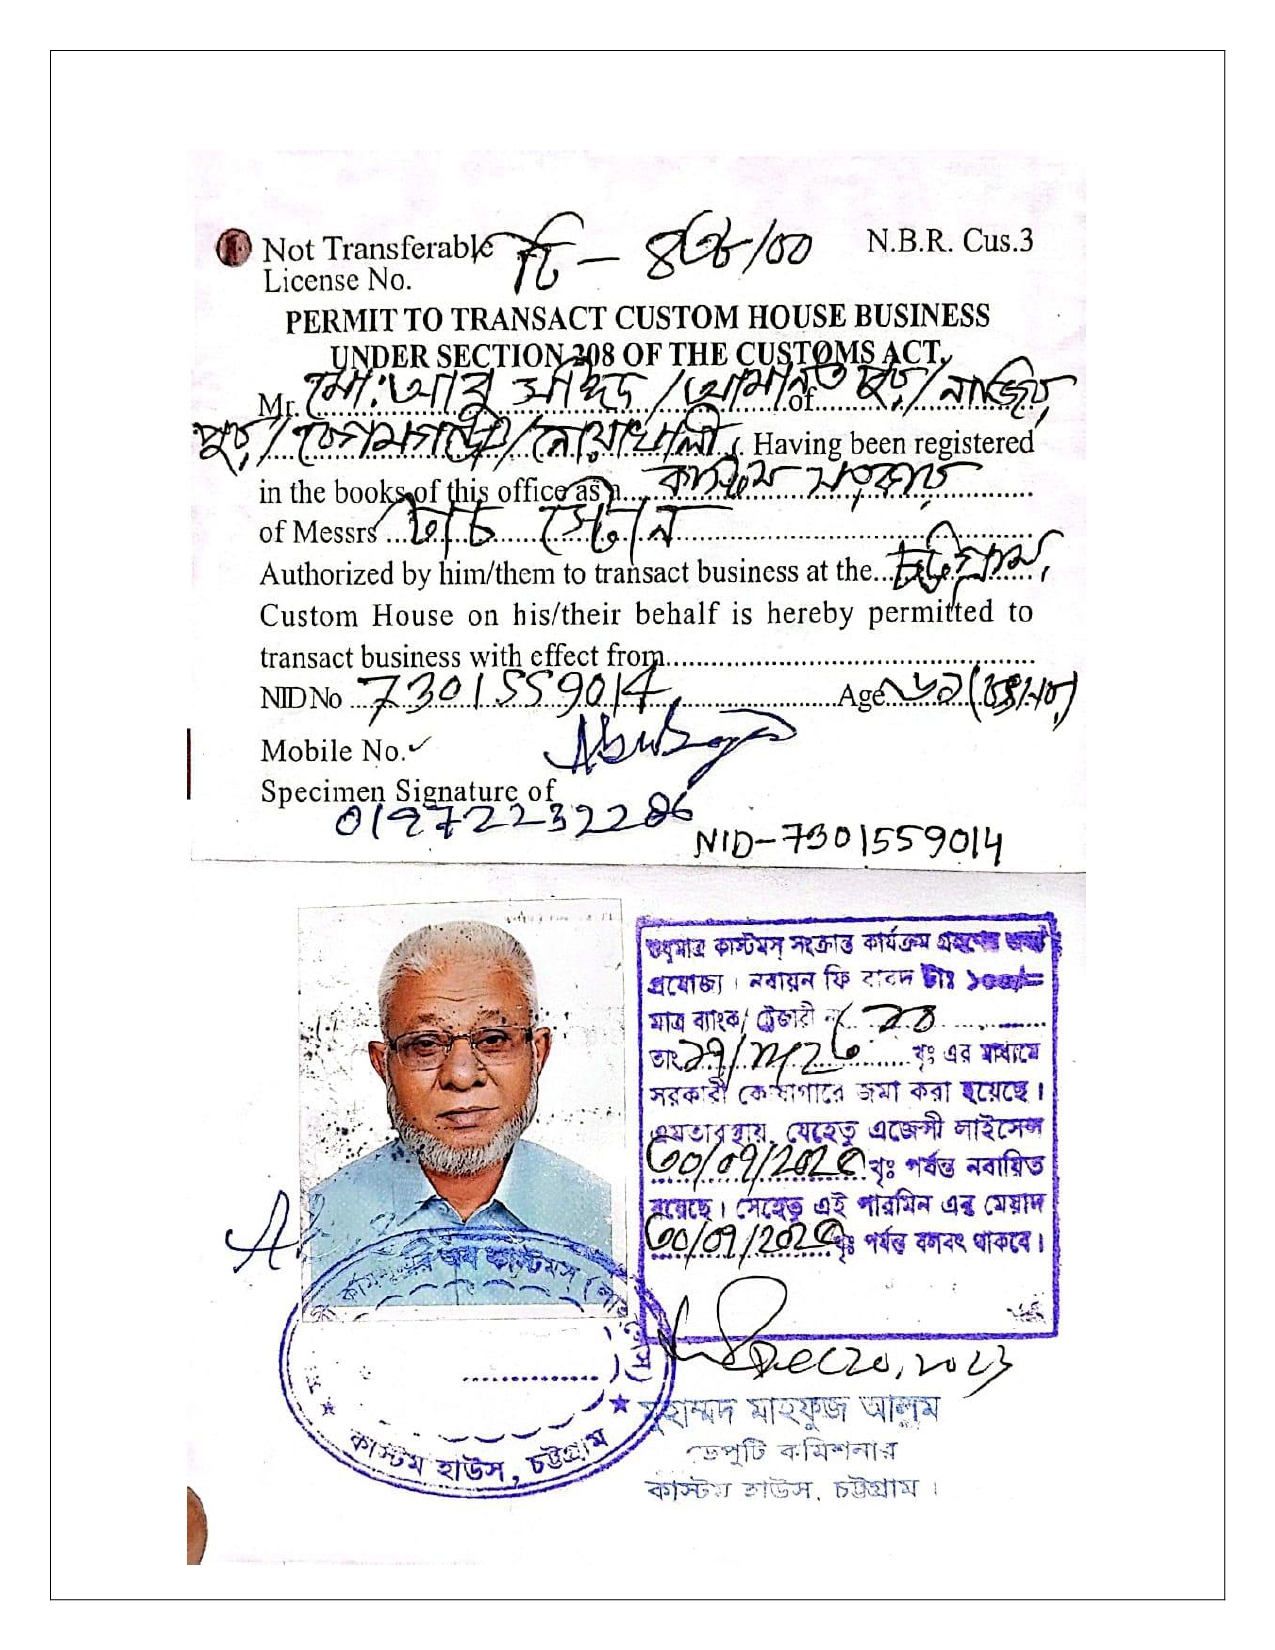 Not Transferable N.B.R. Cus.3
License No.
PERMIT TO TRANSACT CUSTOM HOUSE BUSINESS
UNDER SECTION 208 OF THE CUSTOMS ACT.
Mr. মো: আবু সাঈদ / of
বেগমগঞ্জ / নোয়াখালী Having been registered
in the books of this office as a কাস্টমস সরকার
of Messrs টাচ স্টোন
Authorized by him/them to transact business at the চট্টগ্রাম
Custom House on his/their behalf is hereby permitted to
transact business with effect from
NID No 7301559014 Age
Mobile No.
Specimen Signature of
NID-7301559014
শুধুমাত্র কাস্টমস্ সংক্রান্ত কার্যক্রম গ্রহণের জন্য
প্রযোজ্য। নবায়ন ফি বাবদ টাঃ
মাত্র ব্যাংক/ ট্রেজারী নং
তাং খৃঃ এর মাধ্যমে
সরকারী কোষাগারে জমা করা হয়েছে।
এমতাবস্থায়, যেহেতু এজেন্সী লাইসেন্স
খৃঃ পর্যন্ত নবায়িত
হয়েছে। সেহেতু এই পারমিট এর মেয়াদ
খৃঃ পর্যন্ত বলবৎ থাকবে।
Dec 20, 2023
মুহাম্মদ মাহফুজ আলম
ডেপুটি কমিশনার
কাস্টম হাউস, চট্টগ্রাম।
কাস্টম হাউস, চট্টগ্রাম